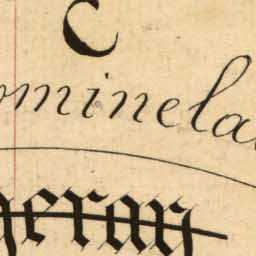 C
ominela
geran